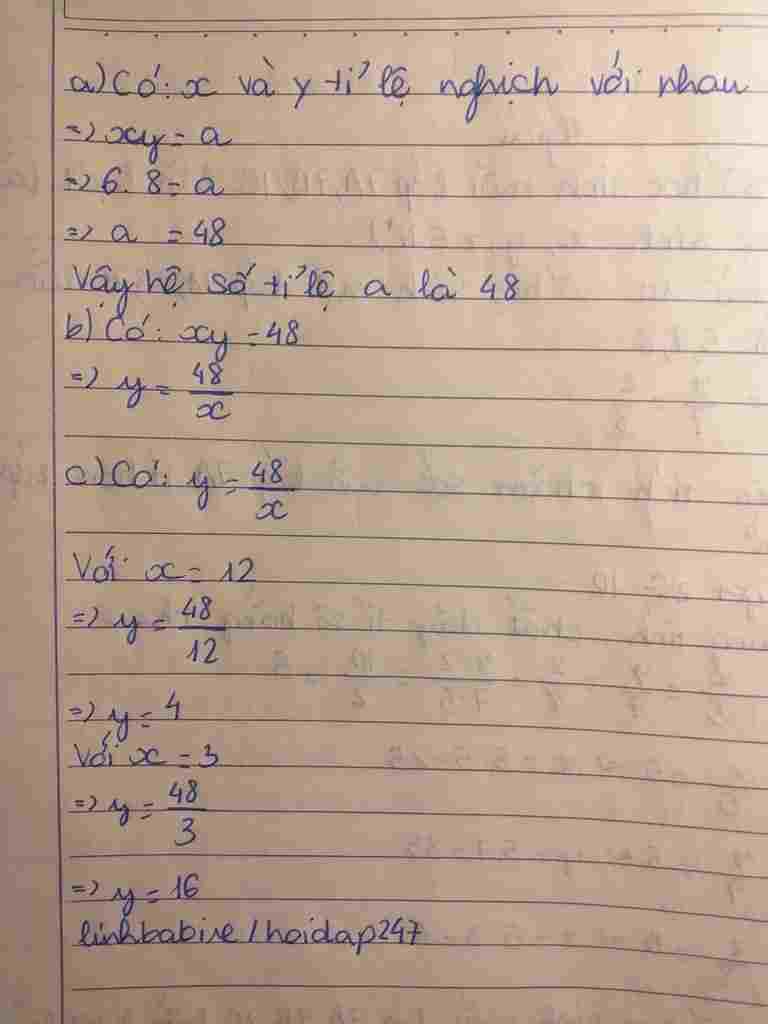 a) Có: x và y tỉ lệ nghịch với nhau
=> xy = a
=> 6.8 = a
=> a = 48
Vậy hệ số tỉ lệ a là 48
b) Có: xy = 48
=> y = 48/x
c) Có: y = 48/x
Với x = 12
=> y = 48/12
=> y = 4
Với x = 3
=> y = 48/3
=> y = 16
linhbabie/hoidap247